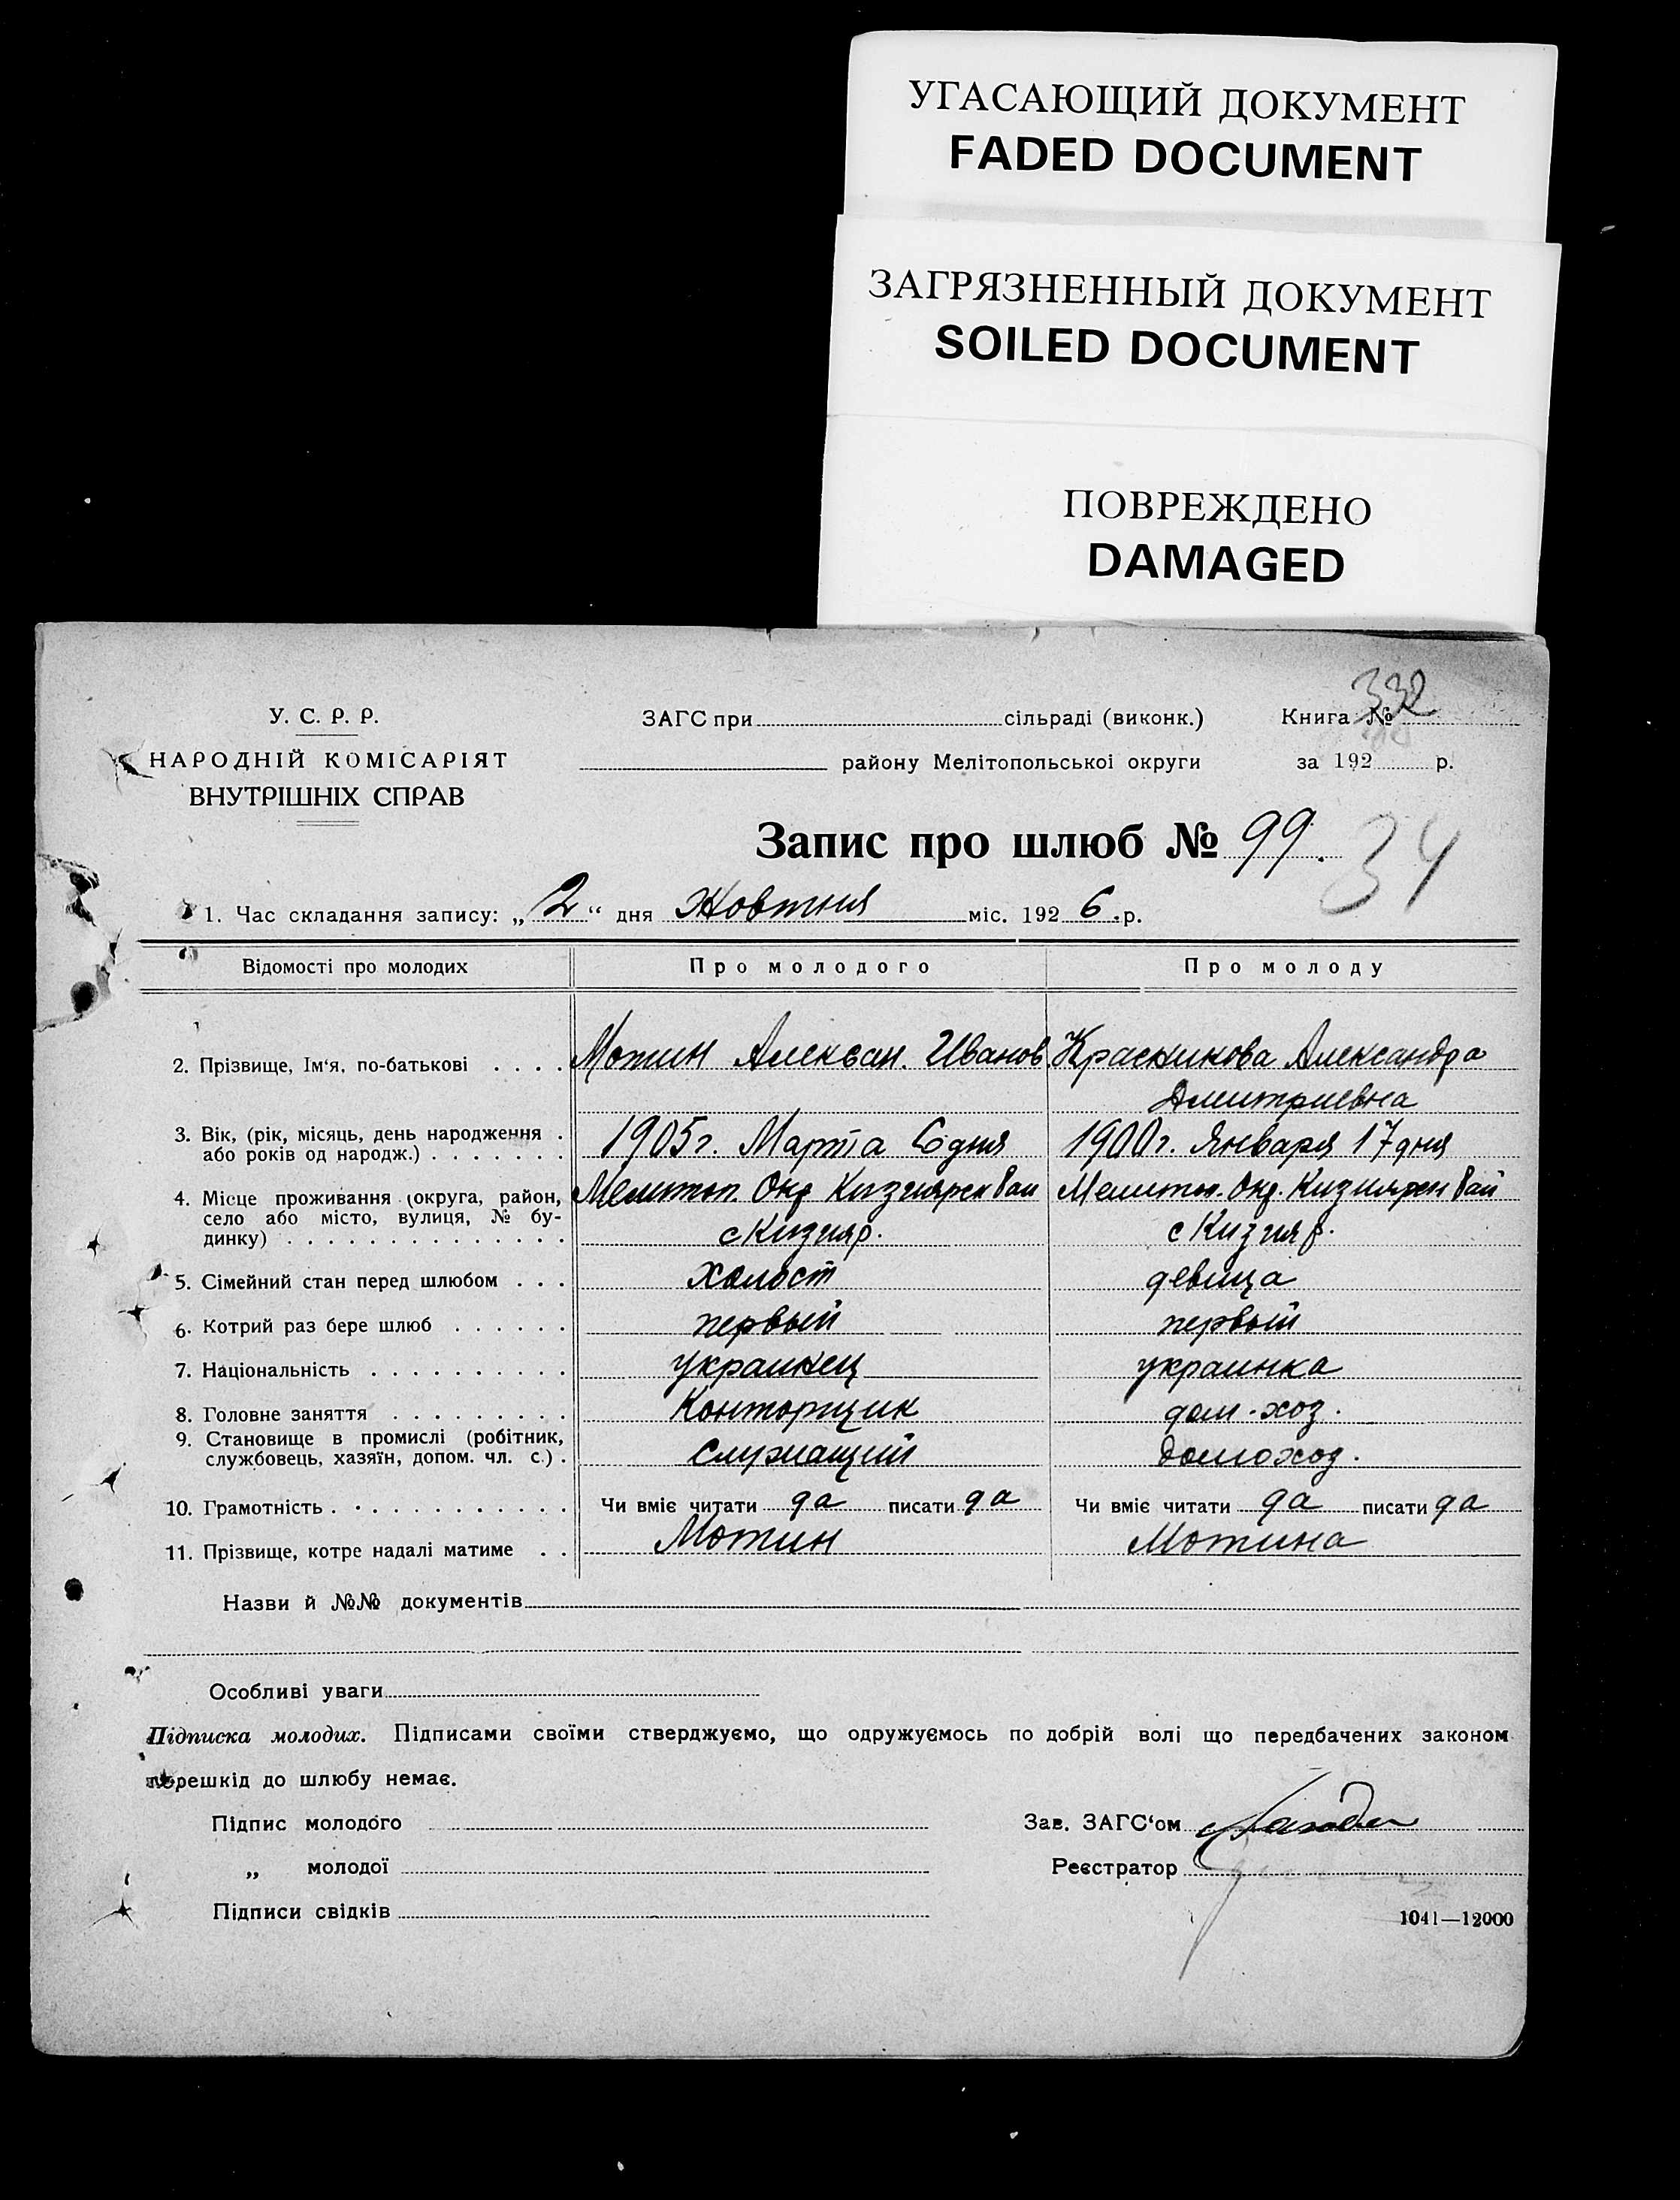 УГАСАЮЩИЙ ДОКУМЕНТ
FADED DOCUMENT
ЗАГРЯЗНЕННЫЙ ДОКУМЕНТ
SOILED DOCUMENT
ПОВРЕЖДЕНО
DAMAGED
332
У. С. Р. Р.
НАРОДНІЙ КОМІСАРІЯТ
ВНУТРІШНІХ СПРАВ
ЗАГС при сільраді (виконк.) Книга №
району Мелітопольської округи за 192 р.
Запис про шлюб № 99.
34
1. Час складання запису: „2“ дня Жовтня міс. 1926.р.
Відомості про молодих Про молодого Про молоду
2. Прізвище, Ім‘я, по-батькові . . . . Мотин Алексан. Иванов. Красникова Александра
Дмитриевна
3. Вік, (рік, місяць, день народження . 1905г. Марта 6 дня 1900г. Января 17 дня
або років од народж.) . . . . . . .
4. Місце проживання (округа, район, Мелитоп. Окр Кизиярск Рай Мелитоп. Окр. Кизиярск Рай
село або місто, вулиця, № бу-
динку) . . . . . . . . . . . . . . с Кизияр. с Кизияр.
5. Сімейний стан перед шлюбом . . . холост девица
6. Котрий раз бере шлюб . . . . . . первый первый
7. Національність . . . . . . . . . . украинец украинка
8. Головне заняття . . . . . . . . . Конторщик дом.-хоз.
9. Становище в промислі (робітник,
службовець, хазяїн, допом. чл. с.) . Служащий домохоз.
10. Грамотність . . . . . . . . . . . . Чи вміє читати да писати да Чи вміє читати да писати да
11. Прізвище, котре надалі матиме . . Мотин Мотина
Назви й №№ документів
Особливі уваги
Підписка молодих. Підписами своїми стверджуємо, що одружуємось по добрій волі що передбачених законом
перешкід до шлюбу немає.
Підпис молодого Зав. ЗАГС‘ом
„ молодої Реєстратор
Підписи свідків
1041—12000